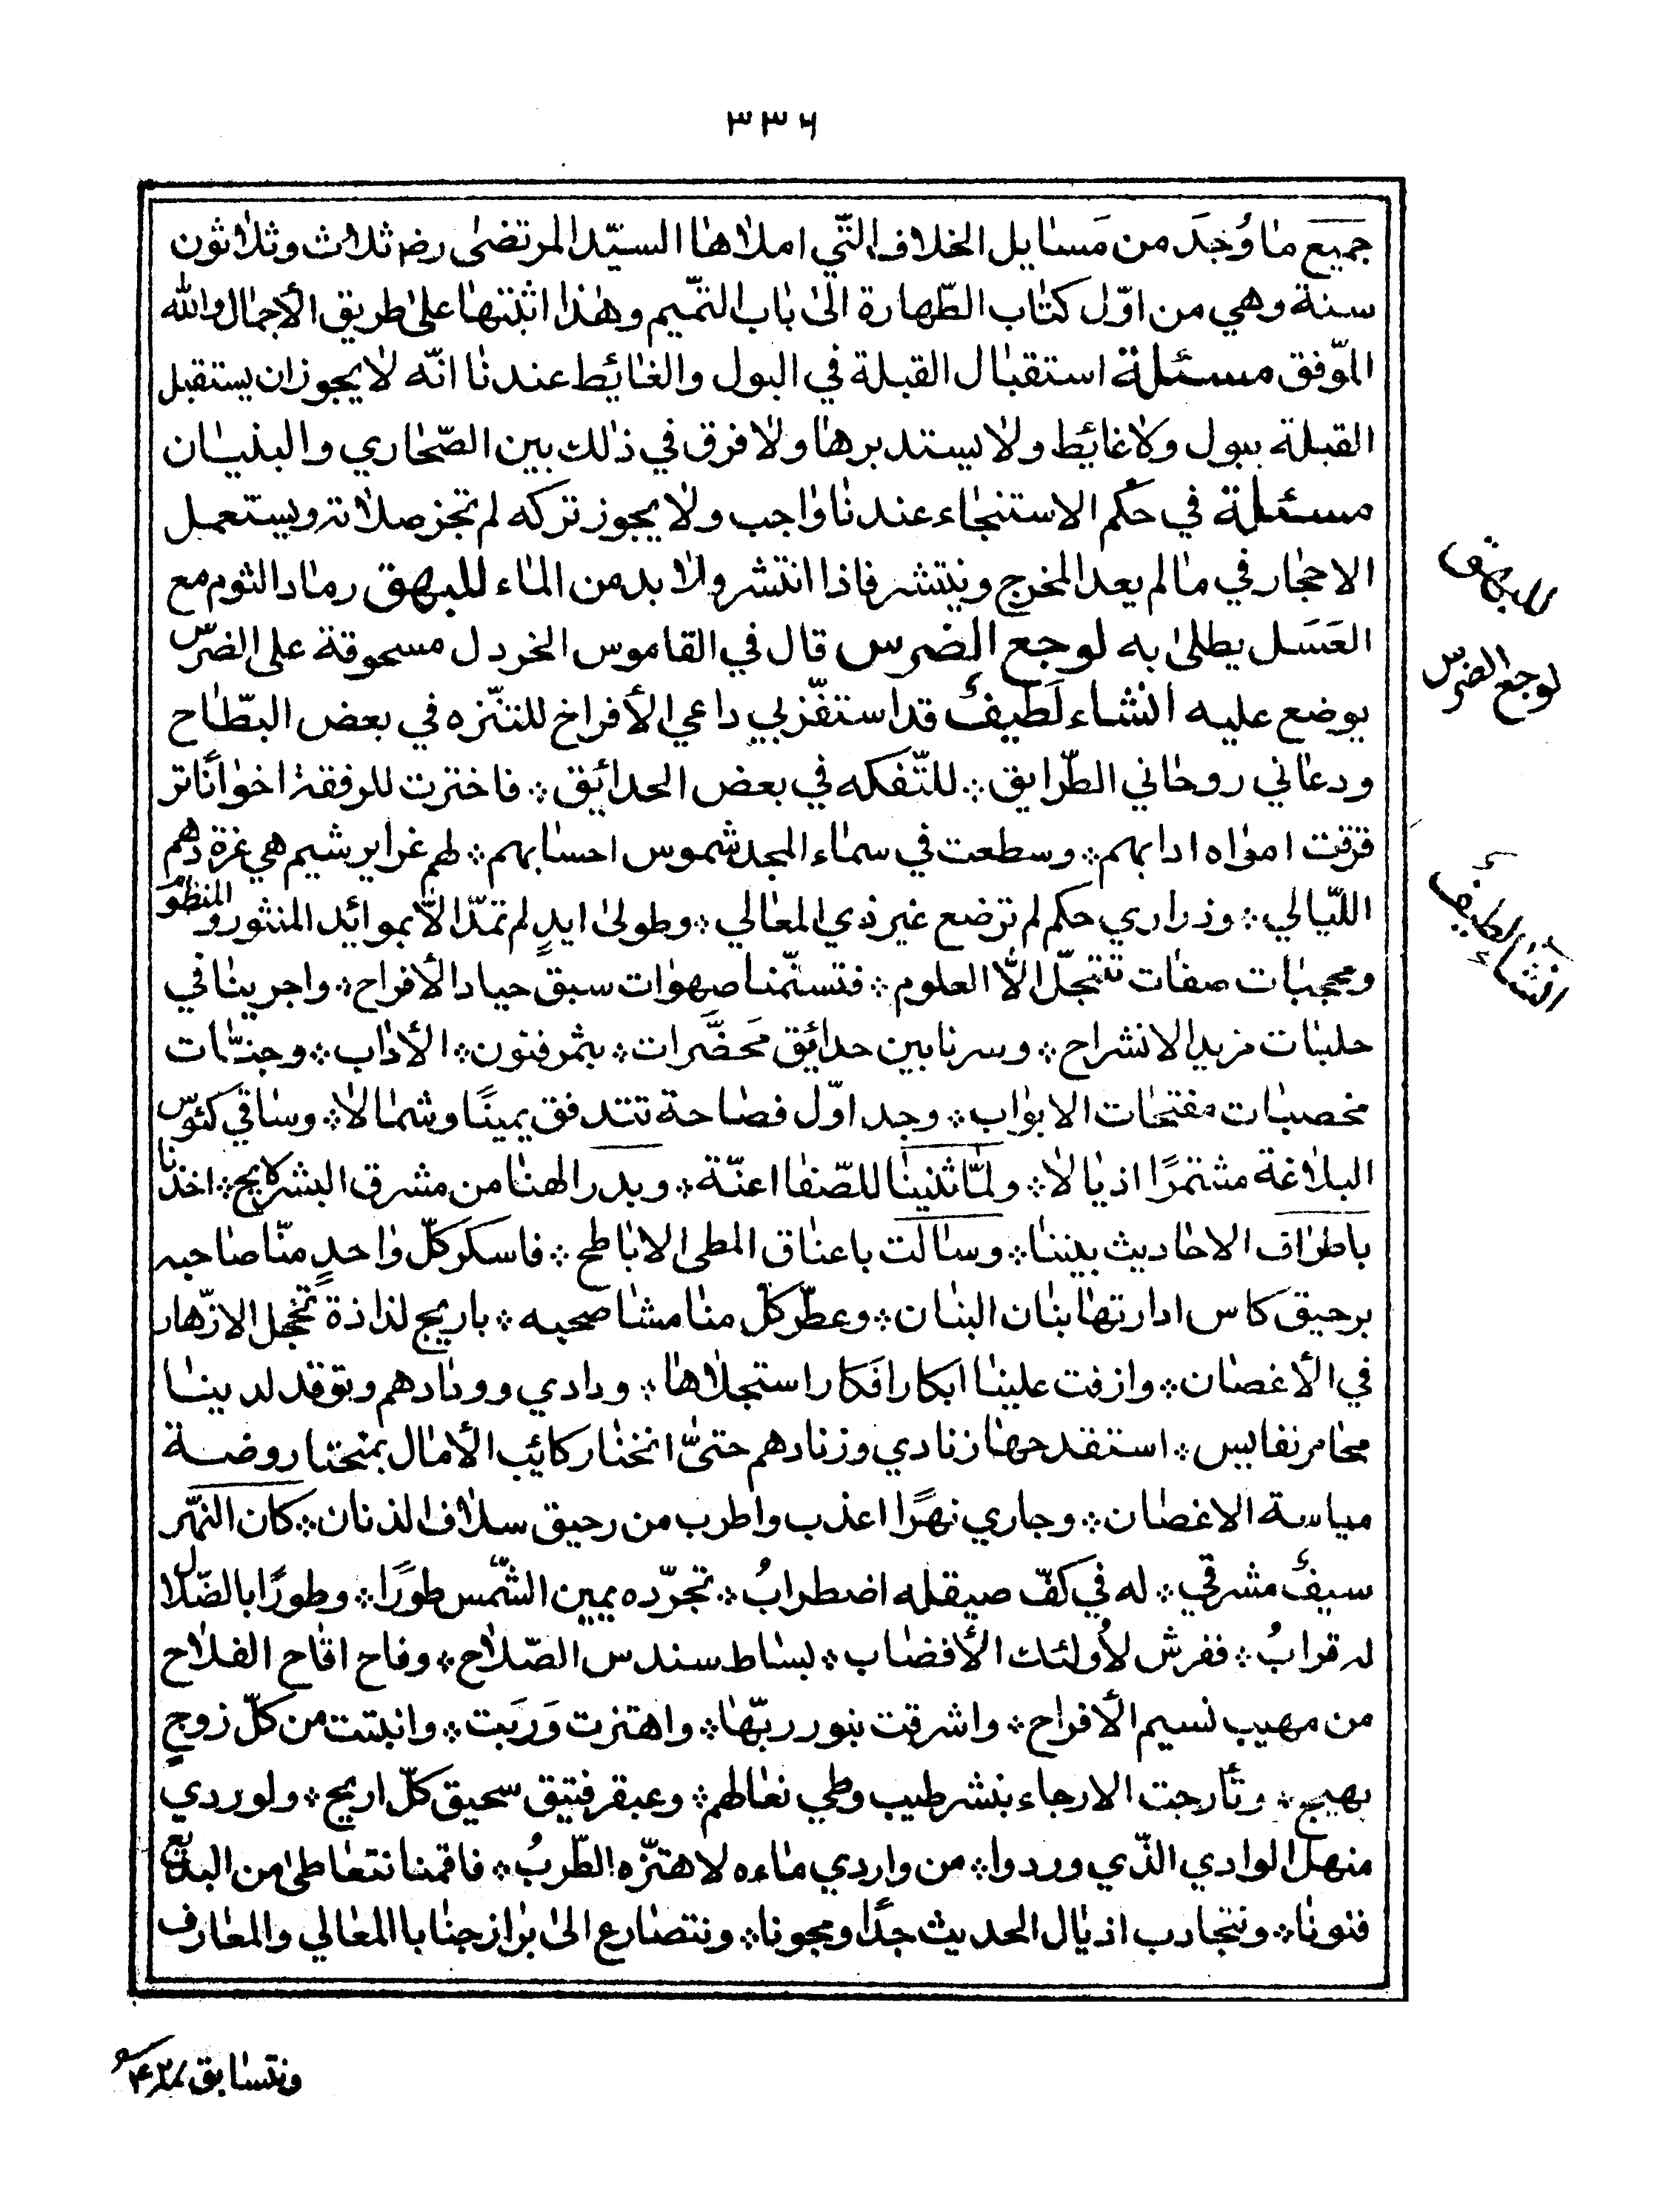 ٣٣٦
جميع ما وُجدَ من مَسايل الخلاف التّي املاها السيّد المرتضى رضه ثلاث وثلاثون
سنة وهي من اوّل كتاب الطّهارة الى باب التمّيم وهذا اثبتها على طريق الأجمال والله
الموّفق مسئلة استقبال القبلة في البول والغائيط عندنا انّه لا يجوز ان يستقبل
القبلة ببول ولا غائيط ولا يستدبرها ولا فرق في ذلك بين الصّحاري والبنيان
مسئلة في حكم الاستنجاء عندنا واجب ولا يجوز تركه لم تجز صلاته ويستعمل
الاحجار في ما لم يعد المخرج وينتشر فاذا انتشر ولا بد من الماء للبهق رماد الثوم مع
العَسَل يطلى به لوجع الضرس قال في القاموس الخردل مسحوقة على الضرّس
يوضع عليه انشاء لَطيفٌ قد استفّزبي داعي الأفراخ للتنّزه في بعض البطّاح
ودعاني روحاني الطّرايق ؞ للتّفكه في بعض الحدائيق ؞ فاخترت للرفقة اخوانًا تر
قرقت امواه ادابهم ؞ وسطعت في سماء المجد شموس احسابهم ؞ لهم غراير شيم هي غرة دهم
اللّيالي ؞ وذراري حكم لم ترضع غير ذي المعالي ؞ وطولى ايدٍ لم تمدّ الاّ بموائد المنثور والمنظوم
ومحجبات صفات تتجلّ الاّ العلوم ؞ فتسنّمنا صهوات سبق جياد الأفراح ؞ واجرينا في
حلبات مزيد الانشراح ؞ وسرنا بين حدائيق مَحضَّرات ؞ بثمر فنون ؞ الأداب ؞ وجنّات
مخصبات مفتحات الابواب ؞ وجد اوّل فصاحة تتدفق يمينًا وشمالا ؞ وساقي كئوس
البلاغة مشتمرًا اذيالا ؞ ولمّا ثنينا للصّفا اعنّة ؞ وبدر الهنا من مشرق البشر لايح ؞ اخذنا
باطراف الاحاديث بيننا ؞ وسالت باعناق المطى الاباطح ؞ فاسكر كلّ واحدٍ منّا صاحبه
برحيق كاس ادارتها بنان البنان ؞ وعطّر كلّ منا مشا صحبه ؞ باريج لذاذة تخجل الازّهار
في الأغصان ؞ وازفت علينا ابكار افكار استجلاها ؞ ودادي وودادهم وبتوقد لدينا
مجامر نفايس ؞ استقدحها زنادي وزنادهم حتىّ انخنا ركايئب الأمال بمنحنا روضة
مياسة الاغصان ؞ وجاري نهرًا اعذب واطرب من رحيق سلاف الدنان ؞ كان النّهر
سيفٌ مشرقي ؞ له في كفّ صيقله اضطرابُ ؞ تجرّده يمين الشّمس طورًا ؞ وطورًا بالضّلال
له قرابُ ؞ ففرش لأولئك الأفضاب ؞ بساط سندس الصّلاح ؞ وفاح اقاح الفلاح
من مهيب نسيم الأفراح ؞ واشرقت بنور ربّها ؞ واهتزت وَرَبت ؞ وانبتت من كلّ زوجٍ
بهيج ؞ وتأرجت الارجاء بنشر طيب وطي نعالهم ؞ وعبقر فتيق سحيق كلّ اريج ؞ ولو ردي
منهل الوادي الذّي وردوا ؞ من واردي ماءه لاهتزّه الطّربُ ؞ فاقمنا نتعاطى من البديع
فنونا ؞ ونتجادب اذيال الحديث جدًّا ومجونا ؞ ونتصارع الى براز جنابا المعالي والمعارف
للبهق
لوجع الضرس
انشاءٌ لطيفٌ
ونتسابق